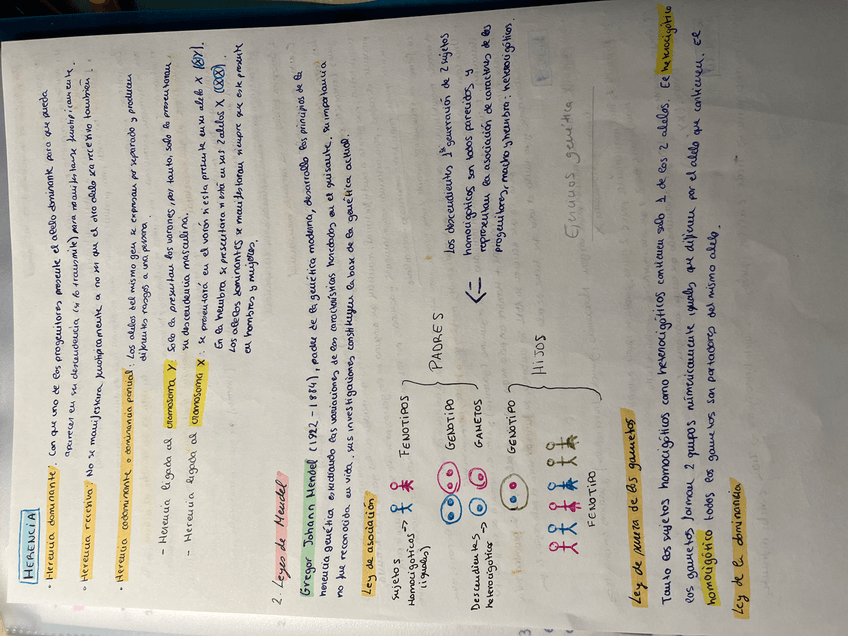 HERENCIA
• Herencia dominante: Con que uno de los progenitores presente el alelo dominante para que pueda
aparecer en su descendencia (se lo transmite) para manifestarse fenotípicamente.
• Herencia recesiva: No se manifestara fenotípicamente a no ser que el otro alelo sea recesivo también.
• Herencia codominante o dominancia parcial: Los alelos del mismo gen se expresan por separado y producen
diferentes rasgos a una persona.
- Herencia ligada al cromosoma Y: Solo la presentan los varones, por tanto, solo la presentaran
su descendencia masculina.
- Herencia ligada al cromosoma X: Se presentará en el varón si esta presente en su alelo X (XY).
En la hembra se presentara si está en sus 2 alelos X (XX).
Los alelos dominantes se manifestaran siempre que este presente
en hombres y mujeres.
2. Leyes de Mendel
Gregor Johann Mendel (1922 - 1884), padre de la genética moderna, desarrollo los principios de la
herencia genética estudiando las variaciones de las características heredadas en el guisante, su importancia
no fue reconocida en vida, sus investigaciones constituyen la base de la genética actual.
Ley de asociación
Sujetos
Homocigóticos →
(iguales)
FENOTIPOS
GENOTIPO
PADRES
Descendientes →
heterocigóticos
GAMETOS
GENOTIPO
HIJOS
FENOTIPO
Los descendientes 1ª generación de 2 sujetos
homocigóticos son todos parecidos y
representan la asociación de caracteres de los
progenitores, macho y hembra: heterocigóticos.
Grupos genética
Ley de pureza de los gametos
Tanto los sujetos homocigóticos como heterocigóticos contienen solo 1 de los 2 alelos. El heterocigótico
los gametos forman 2 grupos numéricamente iguales que difieren por el alelo que contienen. El
homocigótico todos los gametos son portadores del mismo alelo.
Ley de la dominancia